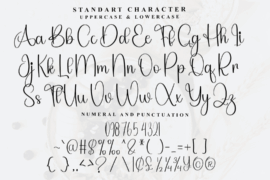 STANDART CHARACTER
UPPERCASE & LOWERCASE
Aa Bb Cc Dd Ee Ff Gg Hh Ii
Jj Kk Ll Mm Nn Oo Pp Qq Rr
Ss Tt Uu Vv Ww Xx Yy Zz
NUMERAL AND PUNCTUATION
098765 4321
~@#$%‰^&*()-_=+[]
{}..‹›?/\|¢£½¼¥©®